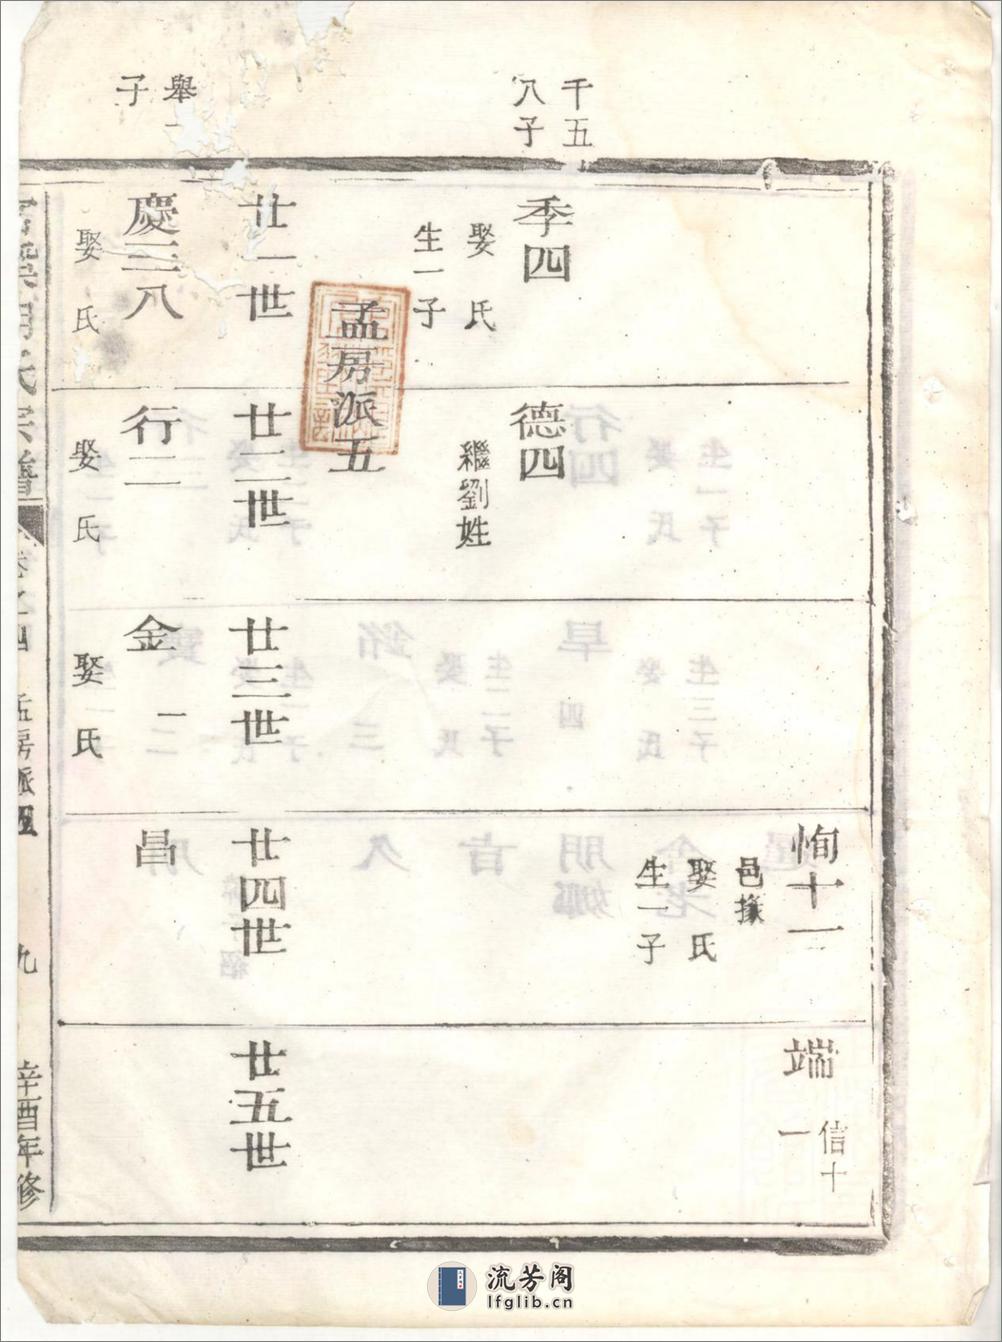 千五
八子
舉一
子
季四
娶氏
生一子
孟房派五
廿一世
慶三八
娶氏
德四
繼劉姓
廿二世
行二
娶氏
廿三世
金二
娶氏
恂十一
邑掾
娶氏
生一子
廿四世
昌
端一
信十
廿五世
氏宗譜
卷之四
孟房派五
九
辛酉年修
流芳阁
lfglib.cn